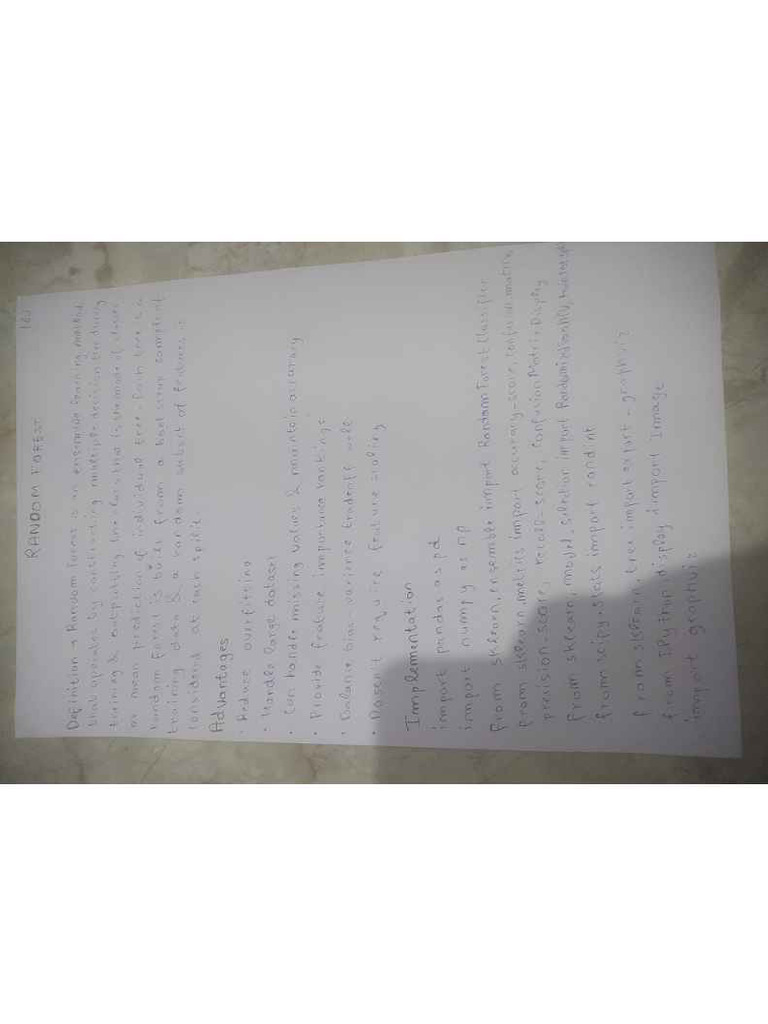 RANDOM FOREST
Definition → Random Forest is an ensemble learning method
that operates by constructing multiple decision tree during
training & outputting the class that is the mode of classes
or mean prediction of individual tree. Each tree in a
random forest is built from a bootstrap sample of
training data & a random subset of features is
considered at each split.
Advantages
• Reduce overfitting
• Handle large dataset
• Can handle missing values & maintain accuracy
• Provide feature importance rankings
• Balance bias variance tradeoff well
• Doesn't require feature scaling
Implementation
import pandas as pd
import numpy as np
from sklearn.ensemble import RandomForestClassifier
from sklearn.metrics import accuracy_score, confusion_matrix,
precision_score, recall_score, ConfusionMatrixDisplay
from sklearn.model_selection import RandomizedSearchCV,
from scipy.stats import randint
from sklearn.tree import export_graphviz
from IPython.display import Image
import graphviz